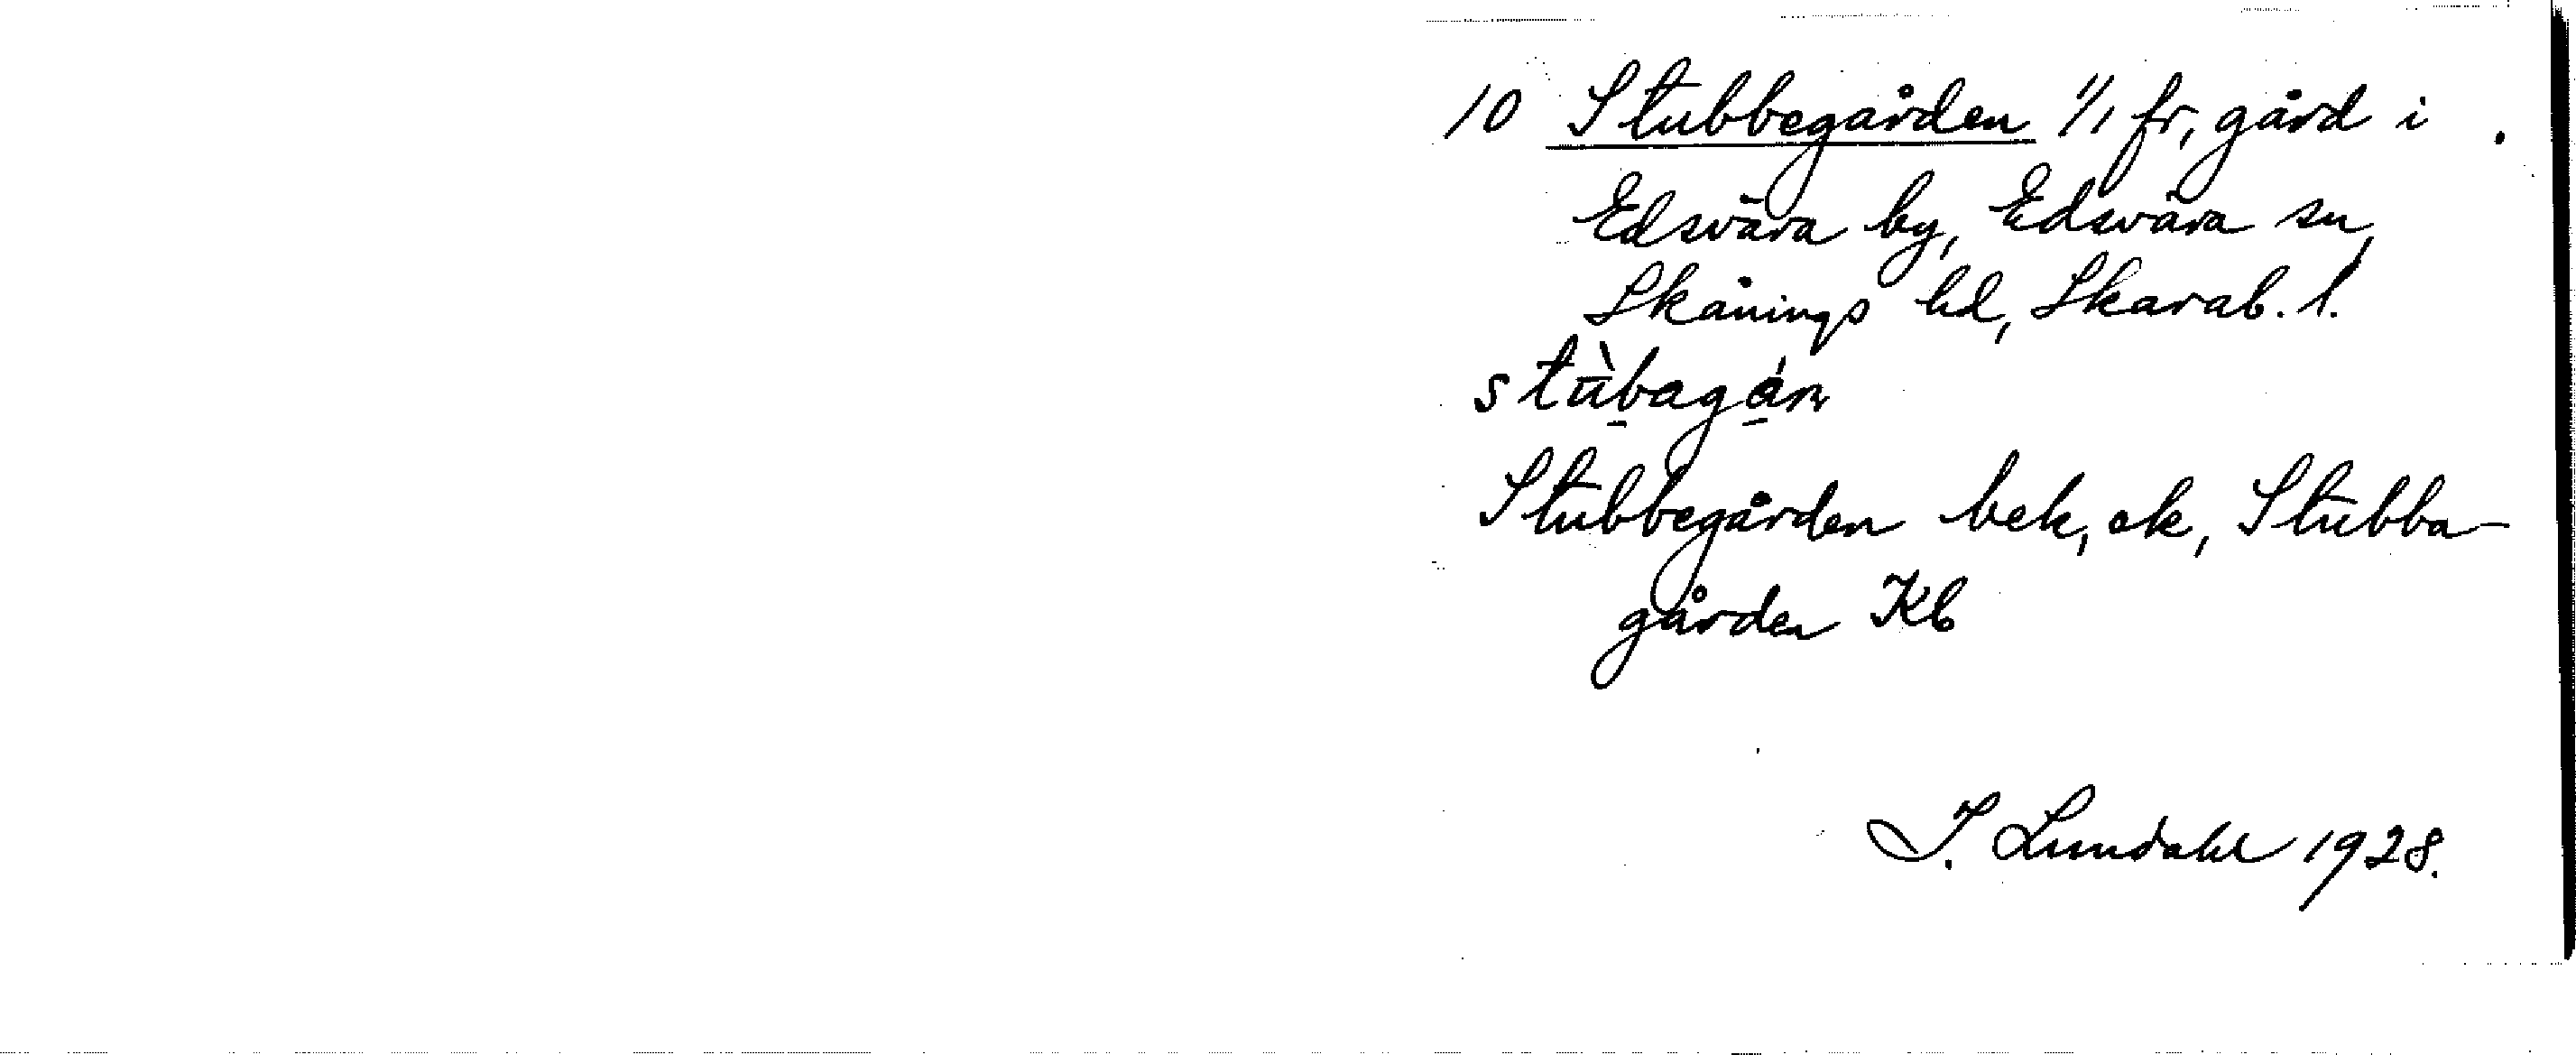 10 Stubbegården 1/1 fr, gård i
Edsvära by, Edsvära sn,
Skånings hd, Skarab. l.
stùbagán
Stubbegården bek, ek, Stubba-
gården Kb
I. Lundahl 1928.